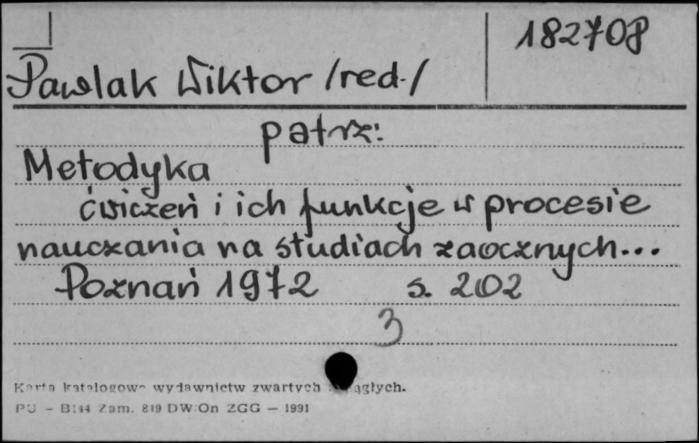 182708
Pawlak Wiktor /red./
patrz:
Metodyka
ćwiczeń i ich funkcje w procesie
nauczania na studiach zaocznych...
Poznań 1972 s. 202
3
Karta katalogowa wydawnictw zwartych ciągłych.
PU - B144 Zam. 819 DW.On ZGG — 1991